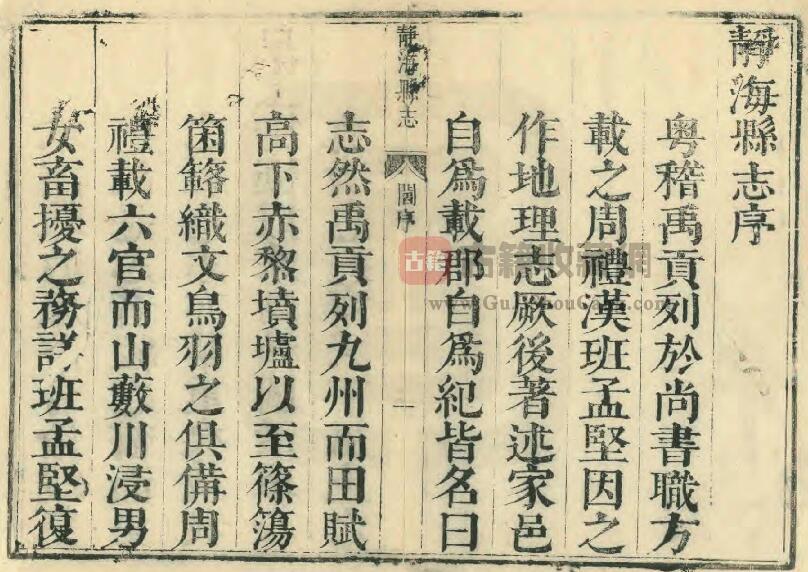 靜海縣志序
粵稽禹貢列於尚書職方
載之周禮漢班孟堅因之
作地理志厥後著述家邑
自爲載郡自爲紀皆名曰
靜海縣志
閻序
一
志然禹貢列九州而田賦
高下赤黎墳壚以至篠簜
箘簵織文鳥羽之俱備周
禮載六官而山藪川浸男
女畜擾之務詳班孟堅復
古籍
古籍收藏網